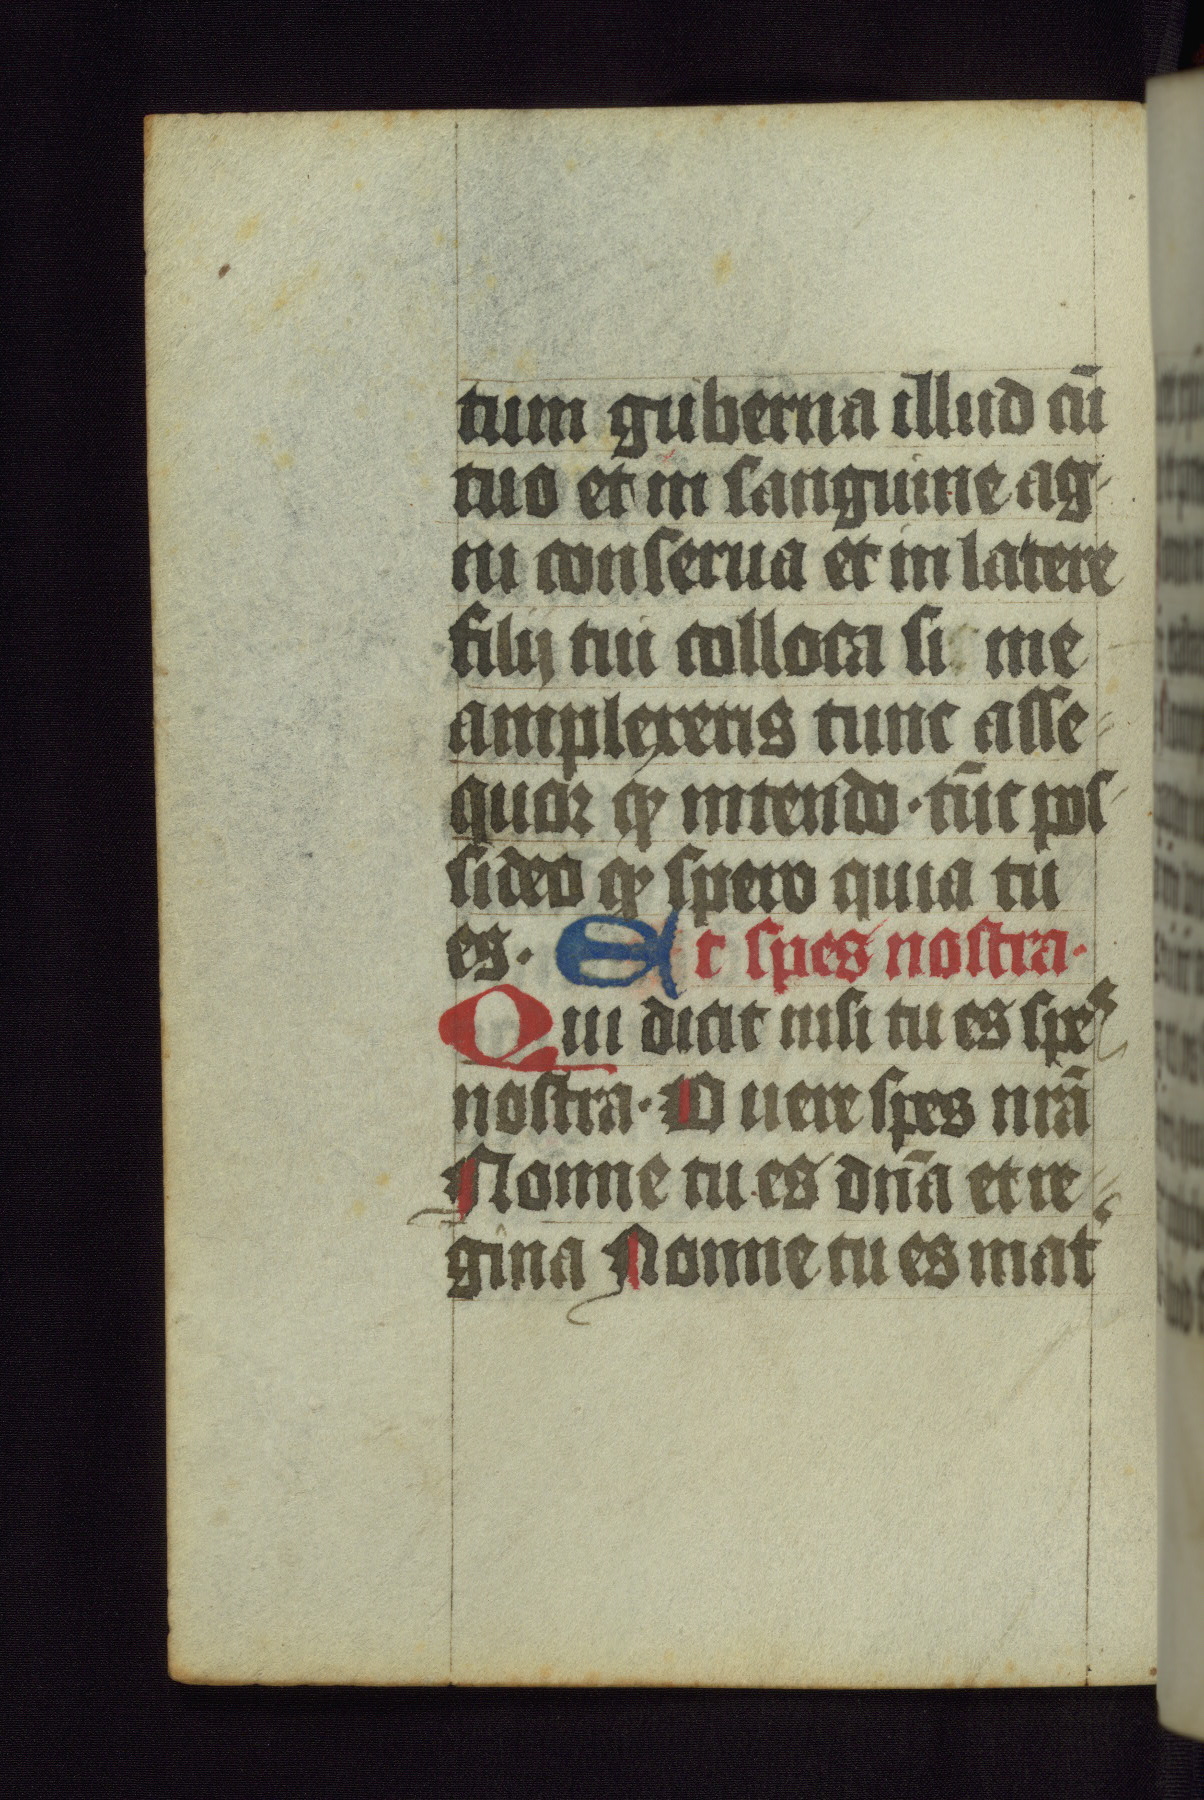 tum guberna illud cū
tuo et in sanguine ag-
ni conserua et in latere
filij tui colloca si me
amplexeris tunc asse-
quor qꝫ intendo · tūc pos-
sideo qꝫ spero quia tu
es · Et spes nostra ·
Qui dicit nisi tu es spes
nostra · O uere spes nrā
Nonne tu es dn̄a et re-
gina Nonne tu es mat